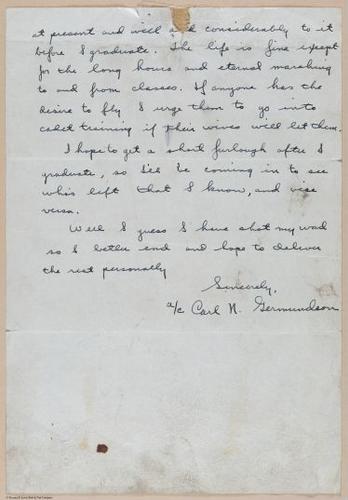 at present and will add considerably to it
before I graduate. The life is fine except
for the long hours and eternal marching
to and from classes. If anyone has the
desire to fly I urge them to go into
cadet training if their wives will let them.
I hope to get a short furlough after I
graduate, so I'll be coming in to see
who's left that I know, and vise
versa.
Well I guess I have shot my wad
so I better end and hope to deliver
the rest personally
Sincerely,
a/c Carl N. Germundson